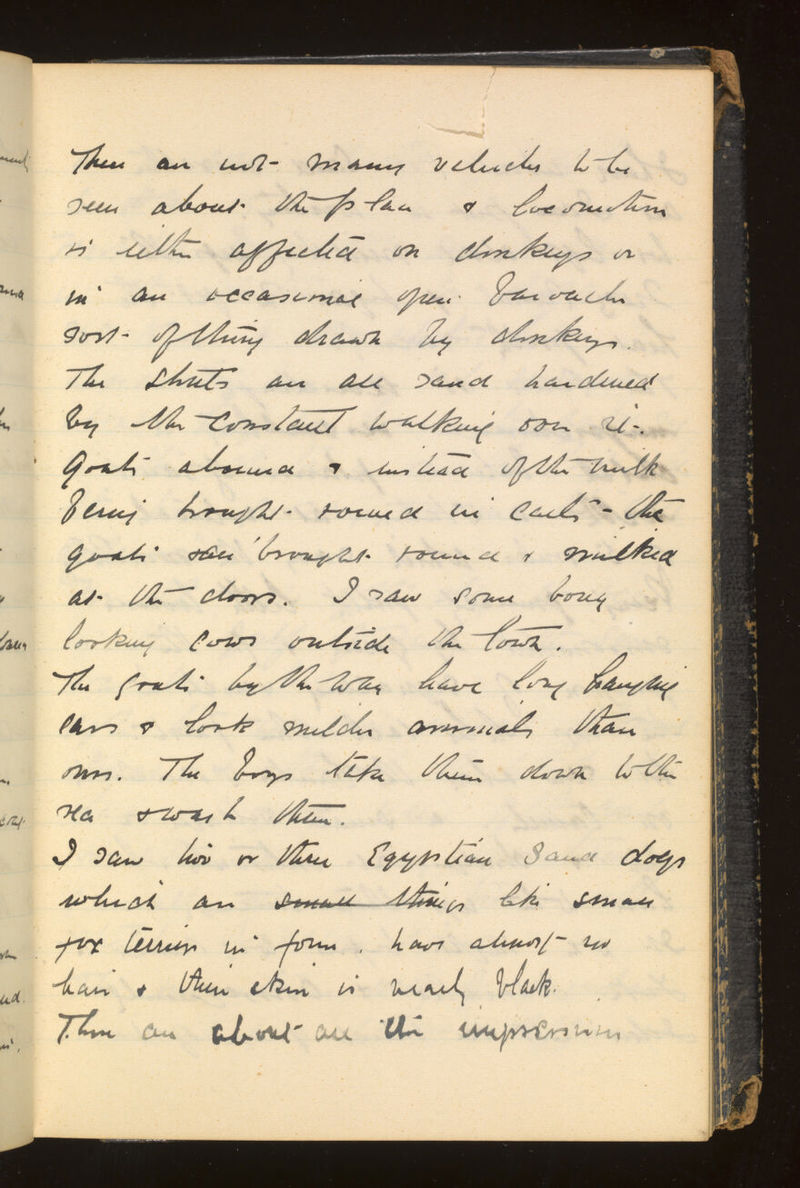 There are not many vehicles to be
seen about the place & locomotion
is either affected on donkeys or
in an occasional open barouche
sort of thing drawn by donkeys.
The streets are all sand hardened
by the constant walking over it.
Goats abound & instead of the milk
being brought round in carts - the
goats are brought round & milked
at the doors. I saw some bony
looking cows outside the town.
The goats by the way have long hanging
ears & look milder animals than
ours. The boys take them down to the
sea & wash them.
I saw two or three Egyptian Sand dogs
which are small things like small
fox terriers in form, have almost no
hair & their skin is nearly black.
These are about all the impressions